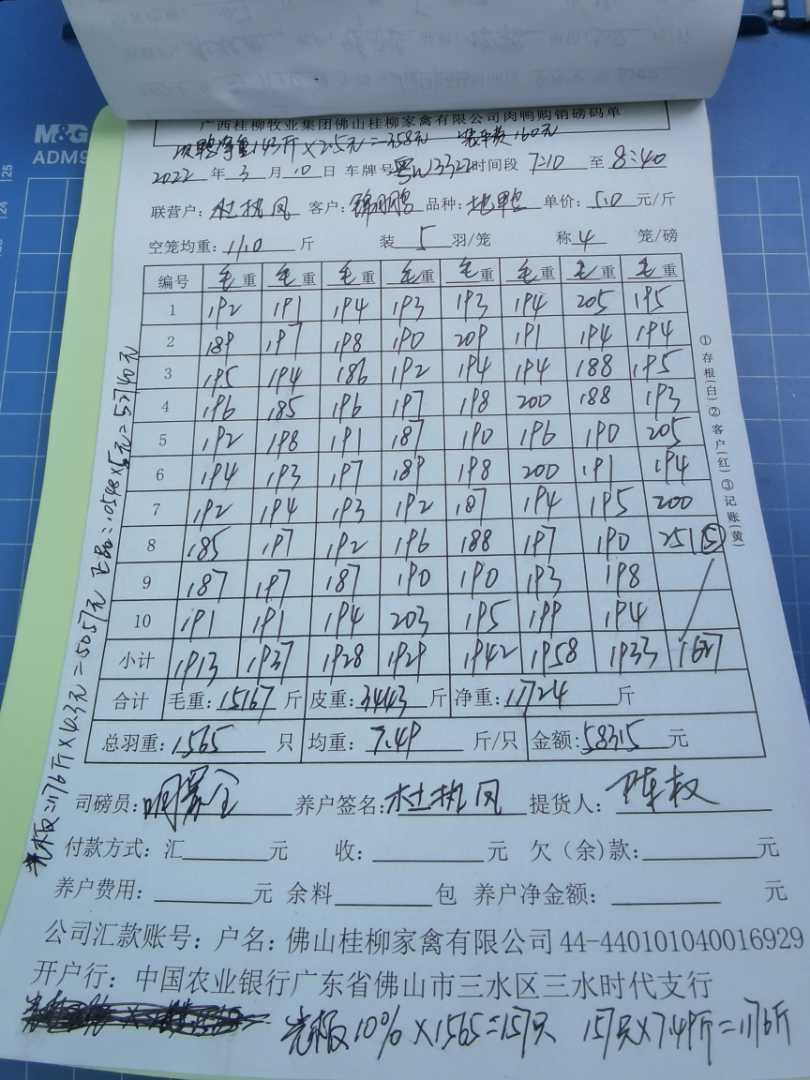 M&G
ADM9
广西桂柳牧业集团佛山桂柳家禽有限公司肉鸭购销磅码单
次鸭净重143斤×2.5元=358元 装车费160元
2022年3月10日 车牌号粤W13322时间段7:10至8:40
联营户:杜执凤 客户:锦鹏 品种:土鸭 单价:5.0元/斤
空笼均重:11.0斤 装5羽/笼 称4笼/磅
编号 毛重 毛重 毛重 毛重 毛重 毛重 毛重 毛重
1 192 191 194 193 193 194 205 195
2 189 197 198 190 209 191 194 194
3 195 194 186 192 194 194 188 195
4 196 185 196 197 198 200 188 193
5 192 198 191 187 190 196 190 205
6 194 193 197 189 198 200 191 194
7 192 194 193 192 187 194 195 200
8 185 197 192 196 188 197 190 251 ⑤
9 187 197 187 190 190 193 198
10 191 191 194 203 195 199 194
小计 1913 1937 1928 1929 1942 1958 1933 1627
合计 毛重:15167斤 皮重:3443斤 净重:11724斤
总羽重:1565只 均重:7.49斤/只 金额:58315元
司磅员: 养户签名:杜执凤 提货人:陈权
付款方式:汇元 收:元 欠(余)款:元
养户费用:元 余料包 养户净金额:元
公司汇款账号:户名:佛山桂柳家禽有限公司44-440101040016929
开户行:中国农业银行广东省佛山市三水区三水时代支行
光板10%×1565=157只 157只×7.49斤=1176斤
①存根(白)②客户(红)③记账(黄)
光板=1176斤×4.3元=5057元 正品=10548×5元=52740元